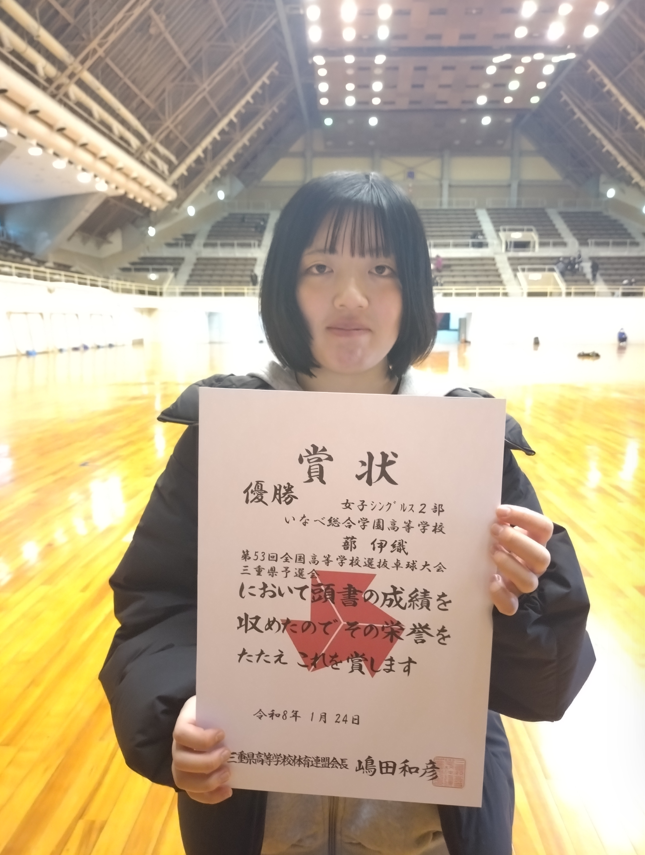 賞状
優勝
女子シングルス2部
いなべ総合学園高等学校
伊織
第53回全国高等学校選抜卓球大会
三重県予選会
において頭書の成績を
収めたので その栄誉を
たたえ これを賞します
令和8年 1月24日
三重県高等学校体育連盟会長 嶋田和彦